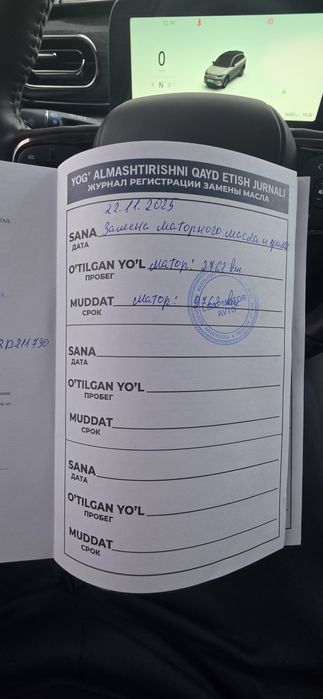 0
N
YOG' ALMASHTIRISHNI QAYD ETISH JURNALI
ЖУРНАЛ РЕГИСТРАЦИИ ЗАМЕНЫ МАСЛА
22.11.2025
SANA Замена моторного масла и
ДАТА
O'TILGAN YO'L матор: 2762 км
ПРОБЕГ
MUDDAT матор: 9762 км
СРОК
AVTO
SANA
ДАТА
O'TILGAN YO'L
ПРОБЕГ
MUDDAT
СРОК
SANA
ДАТА
O'TILGAN YO'L
ПРОБЕГ
MUDDAT
СРОК